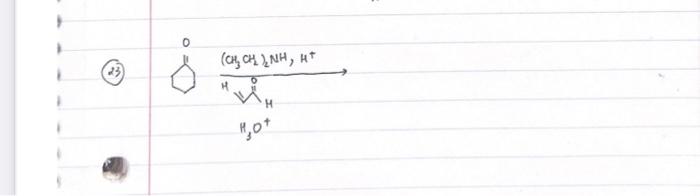 O
23 (CH3CH2)2NH, H+
H O
H
H3O+